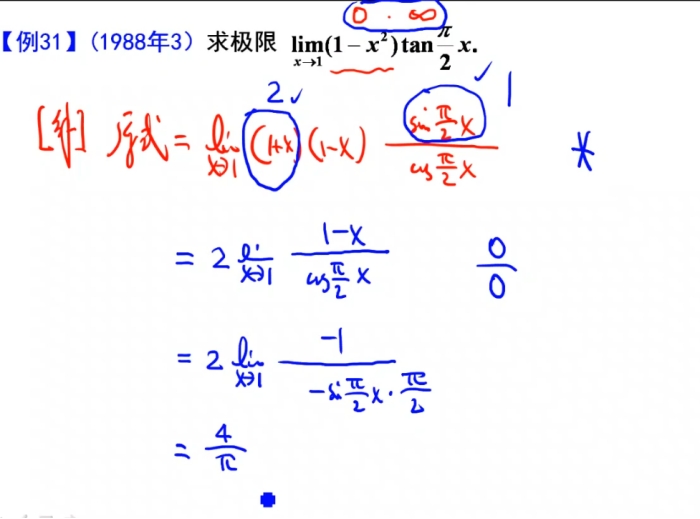 0 · ∞
【例31】(1988年3) 求极限 lim_{x→1}(1−x²)tan π/2 x.
2✓ ✓ 1
[解] 原式 = lim_{x→1} (1+x)(1−x) sin π/2 x / cos π/2 x *
= 2 lim_{x→1} 1−x / cos π/2 x 0/0
= 2 lim_{x→1} −1 / −sin π/2 x · π/2
= 4/π